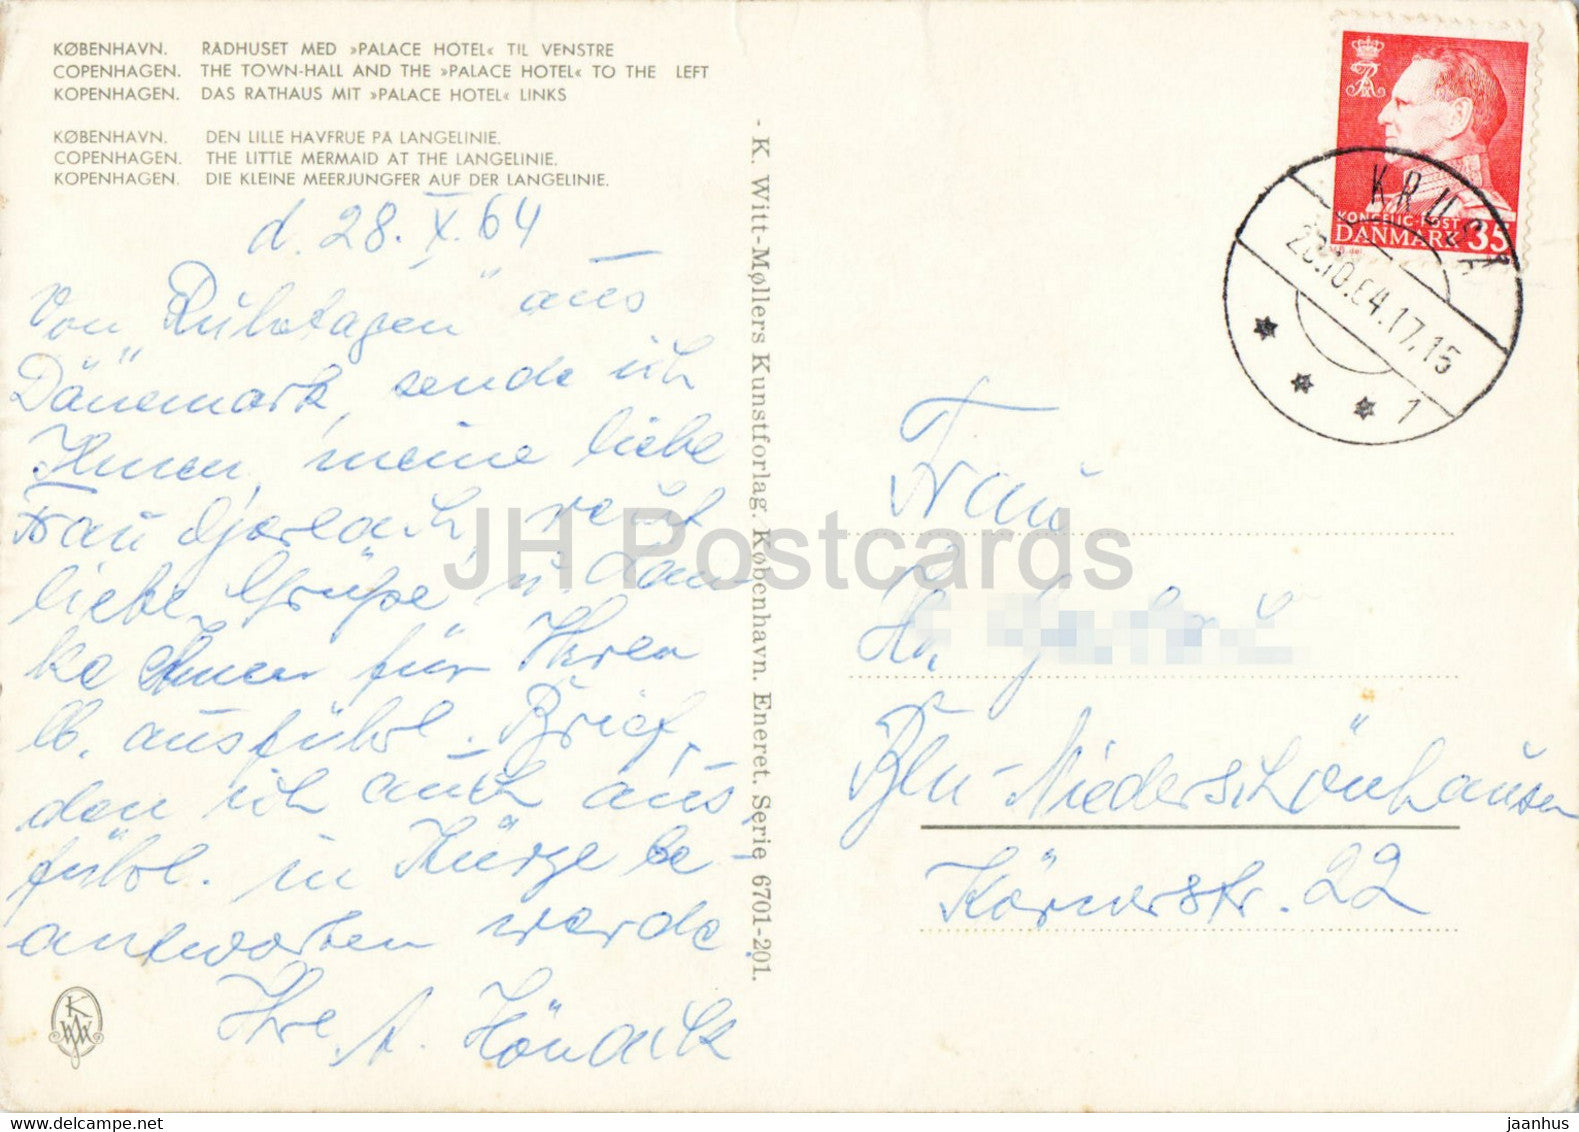 KØBENHAVN. RADHUSET MED »PALACE HOTEL« TIL VENSTRE
COPENHAGEN. THE TOWN-HALL AND THE »PALACE HOTEL« TO THE LEFT
KOPENHAGEN. DAS RATHAUS MIT »PALACE HOTEL« LINKS
KØBENHAVN. DEN LILLE HAVFRUE PA LANGELINIE.
COPENHAGEN. THE LITTLE MERMAID AT THE LANGELINIE.
KOPENHAGEN. DIE KLEINE MEERJUNGFER AUF DER LANGELINIE.
d. 28. X. 64
Von "Ruhetagen" aus
Dänemark, sende ich
Ihnen, meine liebe
Frau, recht
liebe Grüße u. dan-
ke Ihnen für Ihren
lb. ausführl. Brief,
den ich auch aus-
führl. in Kürze be-
antworten werde
Ihre A.
- K. Witt-Møllers Kunstforlag. København. Eneret. Serie 6701-201.
KONGELIG POST
DANMARK 35
KRUSÅ
28.10.64.17,15
1
Frau
Bln-Niederschönhausen
Körnerstr. 22
JH Postcards
www.jhpostcards.com
jaanhus